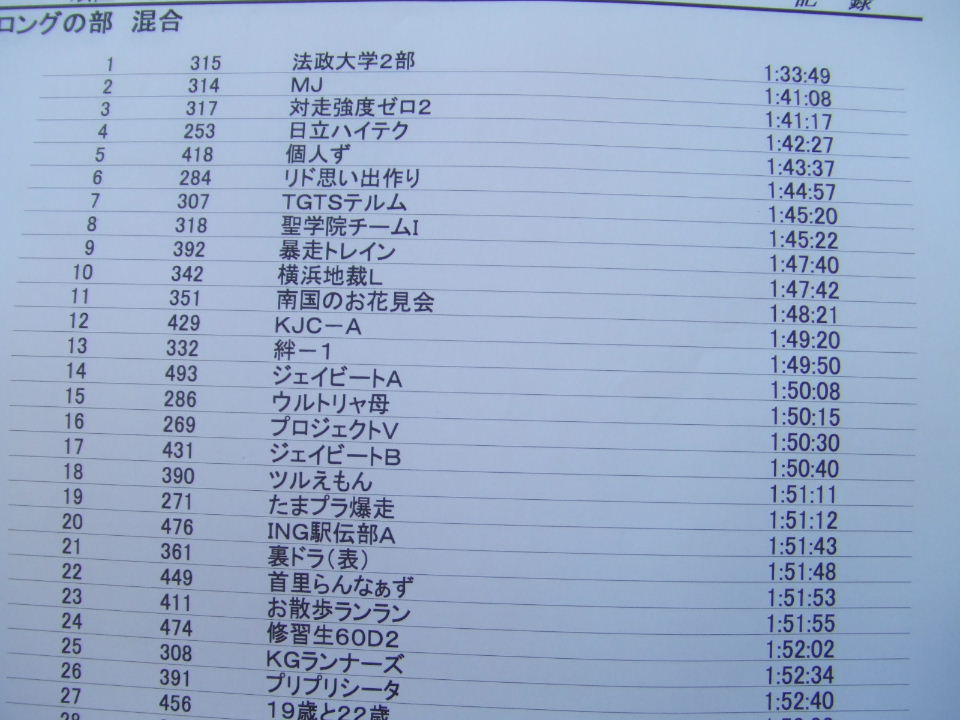 記 録
ロングの部 混合
1 315 法政大学2部 1:33:49
2 314 MJ 1:41:08
3 317 対走強度ゼロ2 1:41:17
4 253 日立ハイテク 1:42:27
5 418 個人ず 1:43:37
6 284 リド思い出作り 1:44:57
7 307 TGTSテルム 1:45:20
8 318 聖学院チームI 1:45:22
9 392 暴走トレイン 1:47:40
10 342 横浜地裁L 1:47:42
11 351 南国のお花見会 1:48:21
12 429 KJC－A 1:49:20
13 332 絆－1 1:49:50
14 493 ジェイビートA 1:50:08
15 286 ウルトリャ母 1:50:15
16 269 プロジェクトV 1:50:30
17 431 ジェイビートB 1:50:40
18 390 ツルえもん 1:51:11
19 271 たまプラ爆走 1:51:12
20 476 ING駅伝部A 1:51:43
21 361 裏ドラ（表） 1:51:48
22 449 首里らんなぁず 1:51:53
23 411 お散歩ランラン 1:51:55
24 474 修習生60D2 1:52:02
25 308 KGランナーズ 1:52:34
26 391 プリプリシータ 1:52:40
27 456 19歳と22歳
28